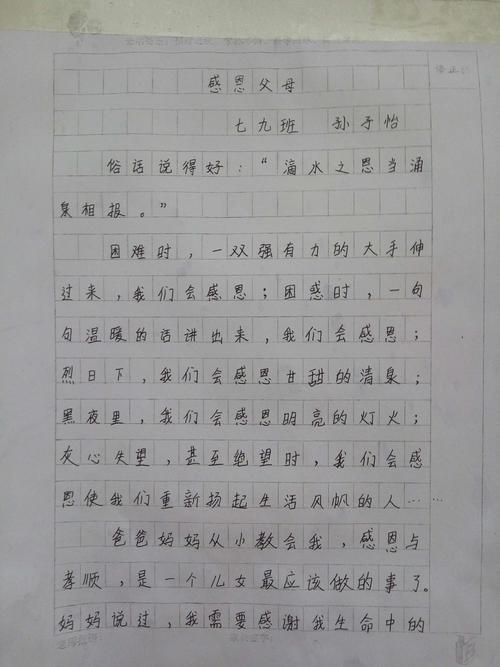 感恩父母
七九班 孙予怡
俗话说得好：“滴水之恩当涌
泉相报。”
困难时，一双强有力的大手伸
过来，我们会感恩；困惑时，一句
句温暖的话讲出来，我们会感恩；
烈日下，我们会感恩甘甜的清泉；
黑夜里，我们会感恩明亮的灯火；
灰心失望，甚至绝望时，我们会感
恩使我们重新扬起生活风帆的人……
爸爸妈妈从小教会我，感恩与
孝顺，是一个儿女最应该做的事了。
妈妈说过，我需要感谢我生命中的